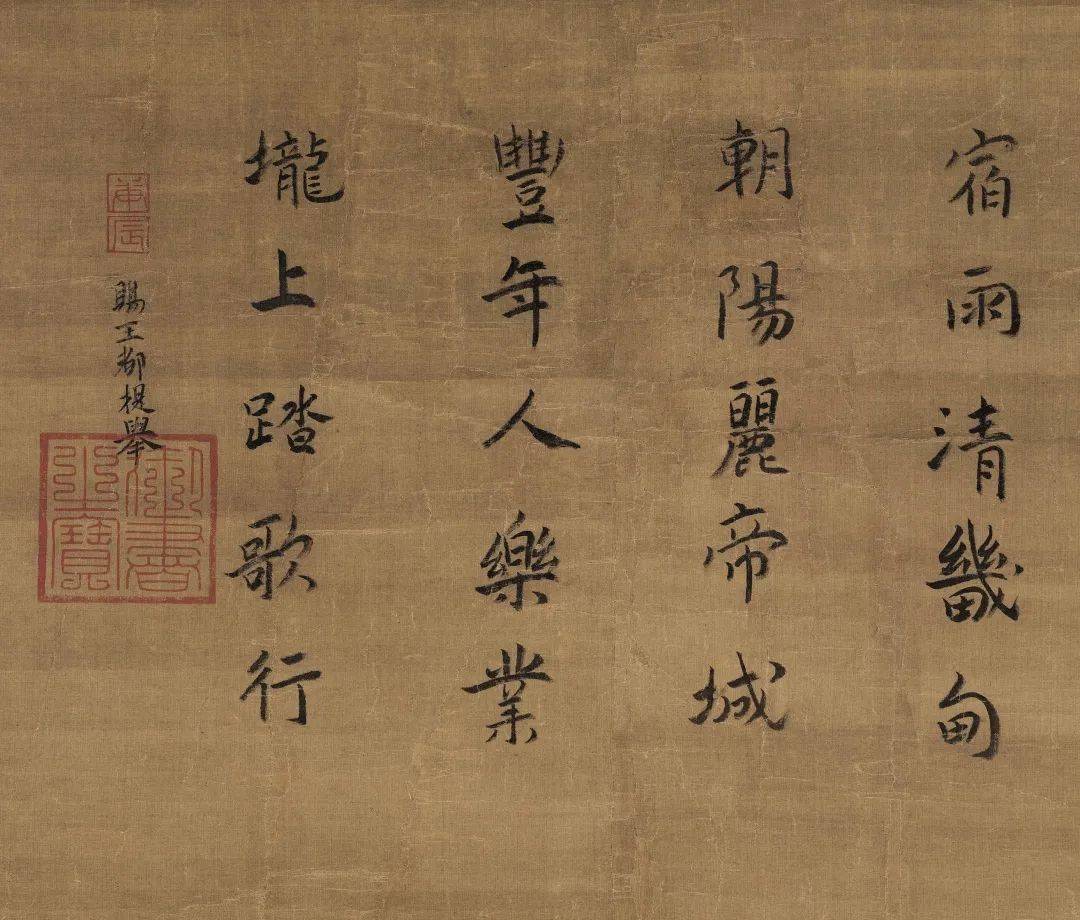 宿雨清畿甸
朝陽麗帝城
豐年人樂業
壠上踏歌行
賜王都提舉
庚辰
御書之寶